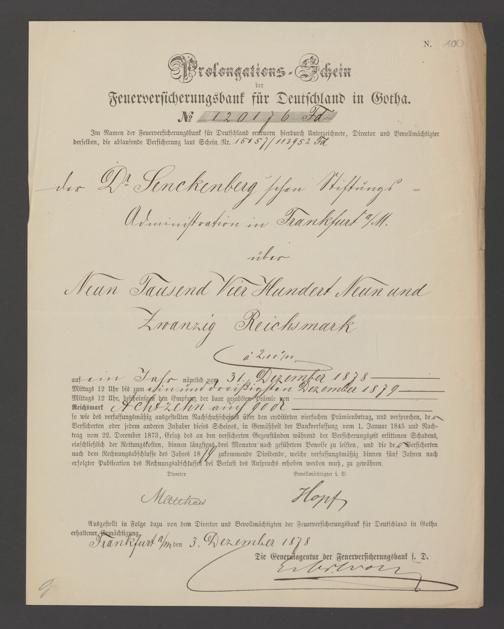 N. 100
Prolongations-Schein
der
Feuerversicherungsbank für Deutschland in Gotha.
№ 120176 Fd
Im Namen der Feuerversicherungsbank für Deutschland erneuern hierdurch Unterzeichnete, Director und Bevollmächtigter
derselben, die ablaufende Versicherung laut Schein Nr. 15157/113952 Fd
der Dr Senckenberg'schen Stiftungs-
Administration in Frankfurt a/M.
über
Neun Tausend Vier Hundert Neun und
Zwanzig Reichsmark
auf ein Jahr nämlich vom 31. Dezember 1878
Mittags 12 Uhr bis zum einunddreißigsten Dezember 1879
Mittags 12 Uhr, bescheinigen den Empfang der baar gezahlten Prämie von
Reichsmark Achtzehn
so wie des verfassungsmäßig ausgestellten Nachschußscheins über den creditirten vierfachen Prämienbetrag, und versprechen, de
Versicherten oder jedem anderen Inhaber dieses Scheines, in Gemäßheit der Bankverfassung vom 1. Januar 1845 und Nach-
trag vom 22. December 1873, Ersatz des an den versicherten Gegenständen während der Versicherungszeit erlittenen Schadens,
einschließlich der Rettungskosten, binnen längstens drei Monaten nach geführtem Beweise zu leisten, und die de Versicherten
nach dem Rechnungsabschlusse des Jahres 1879 zukommende Dividende, welche verfassungsmäßig binnen fünf Jahren nach
erfolgter Publication des Rechnungsabschlusses bei Verlust des Anspruchs erhoben werden muß, zu gewähren.
Director
Bevollmächtigter i. V.
Hopf
Ausgestellt in Folge dazu von dem Director und Bevollmächtigten der Feuerversicherungsbank für Deutschland in Gotha
erhaltener Ermächtigung.
Frankfurt a/M den 3. Dezember 1878
Die Generalagentur der Feuerversicherungsbank f. D.